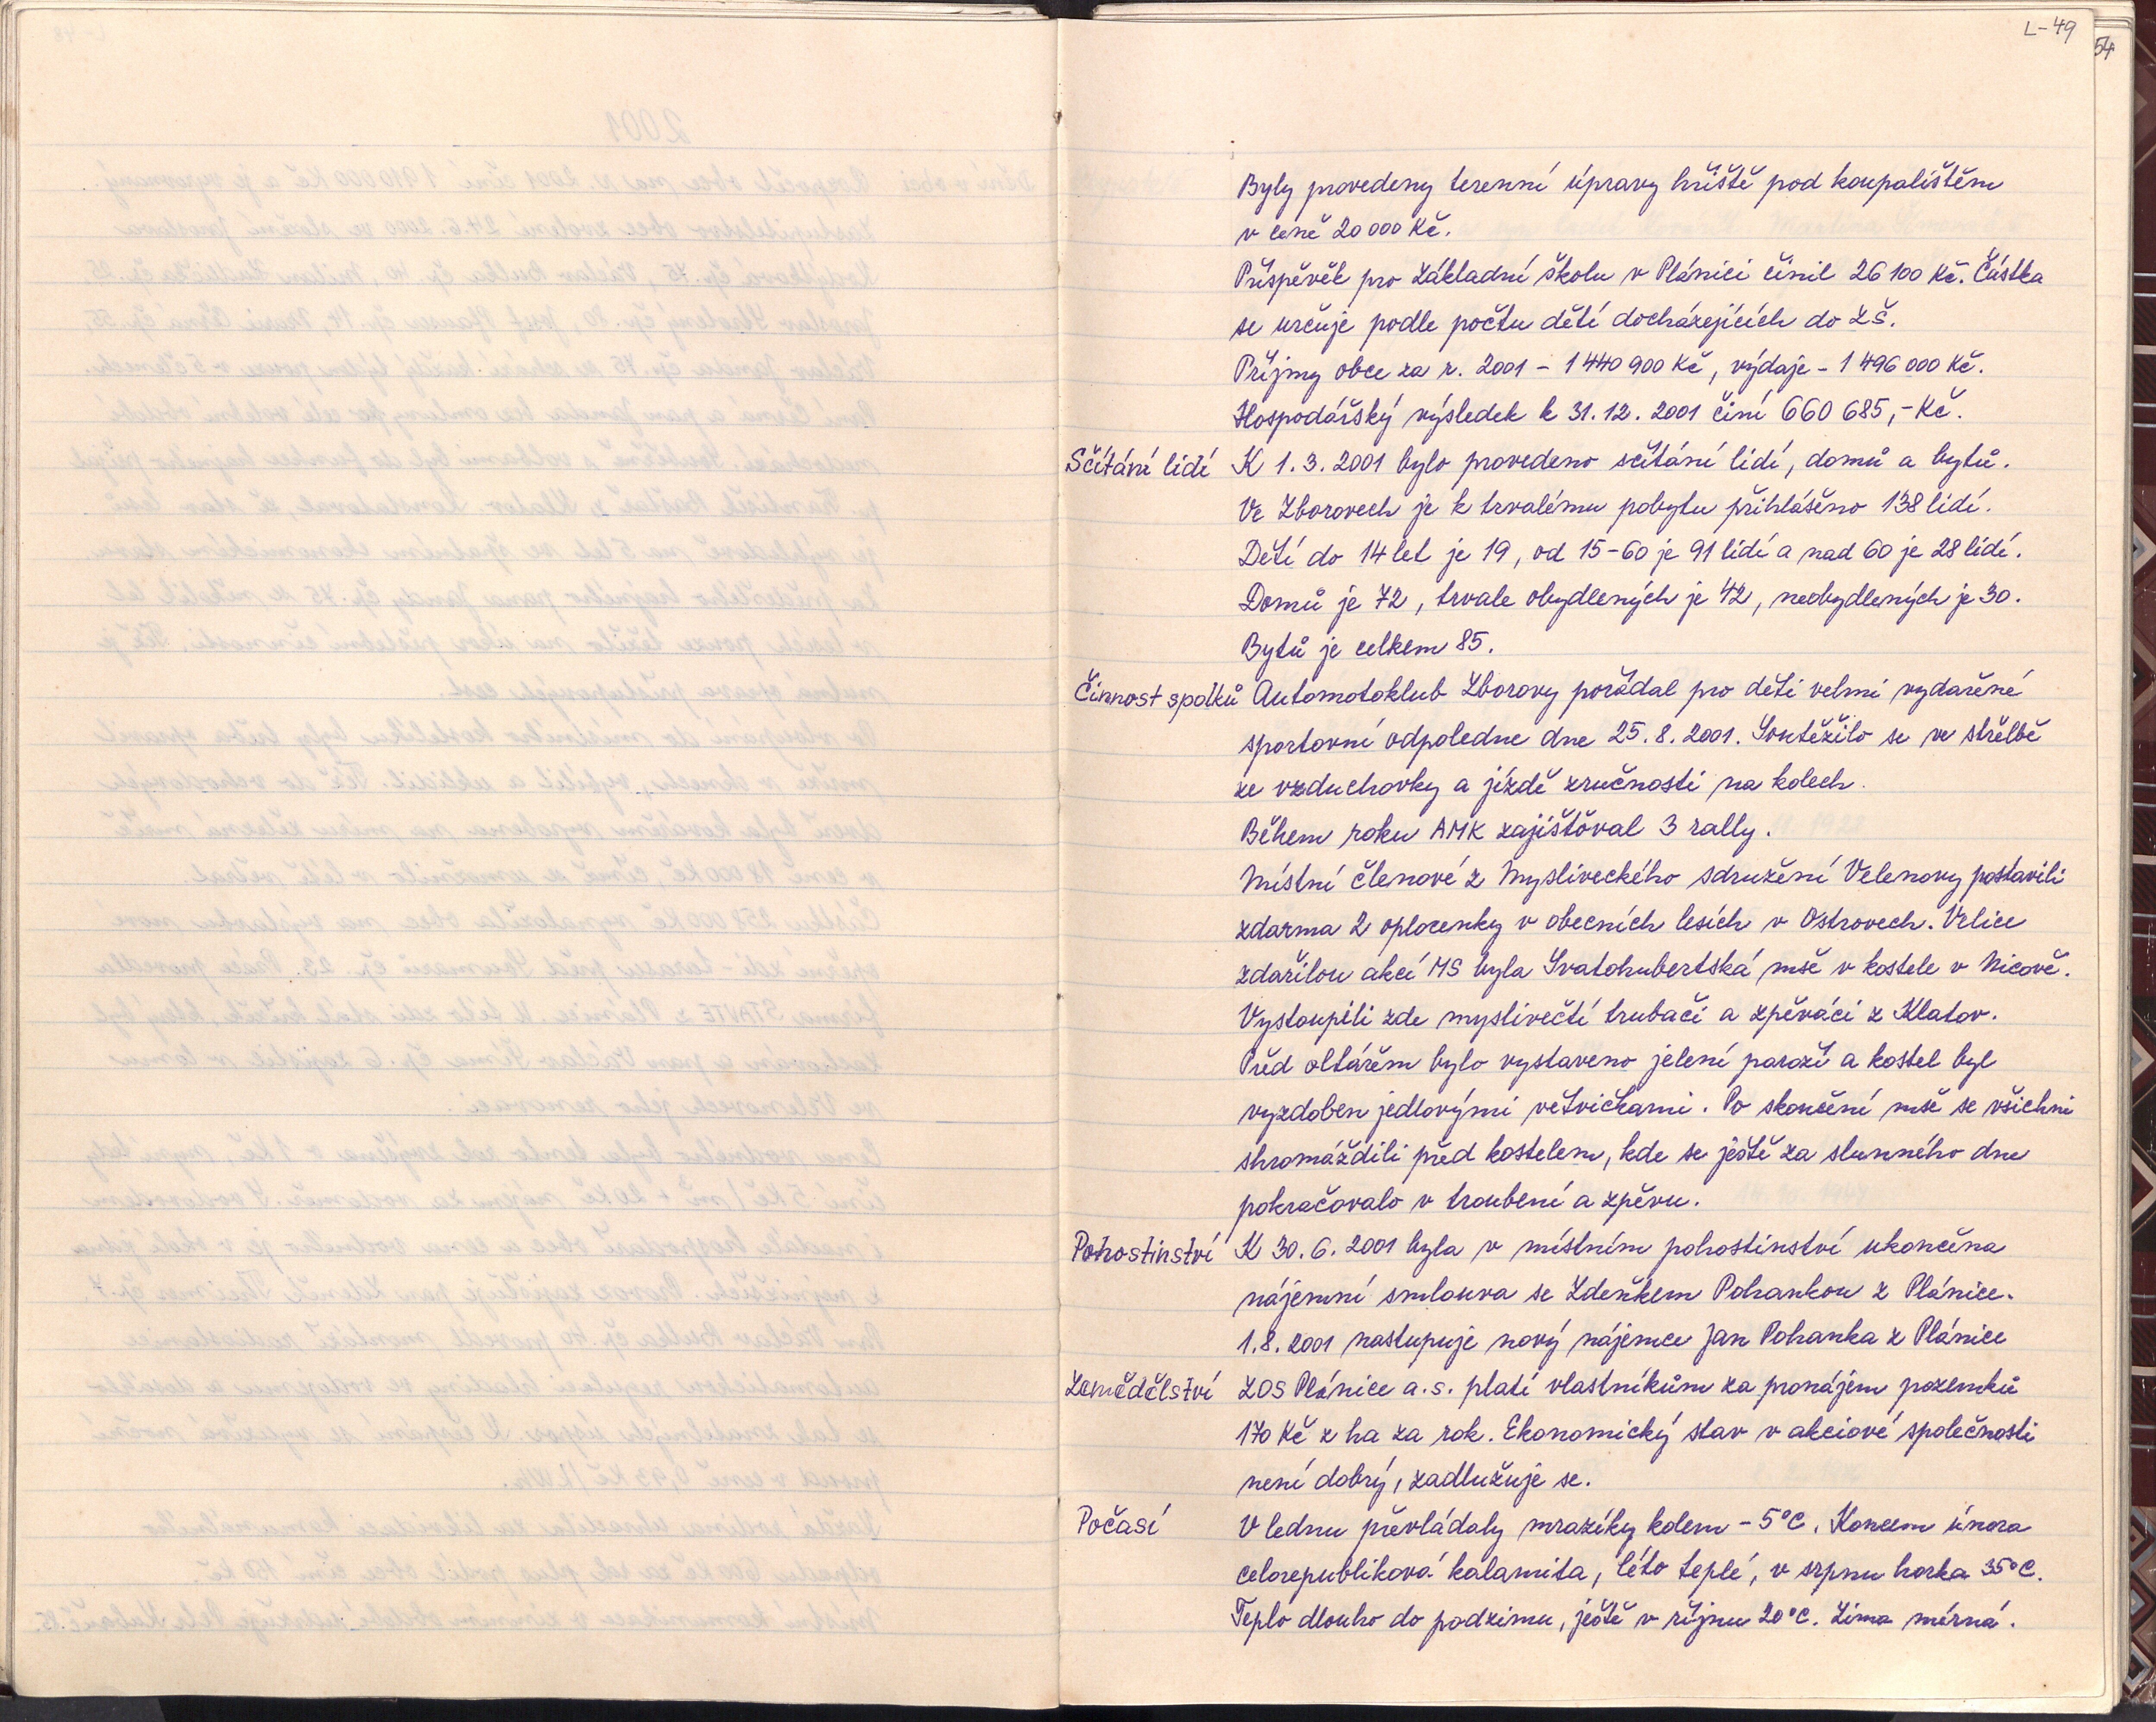 L-49
54
Byly provedeny terenní úpravy hřiště pod koupalištěm
v ceně 20 000 Kč.
Příspěvěk pro Základní školu v Plánici činil 26 100 Kč. Částka
se určuje podle počtu dětí docházejících do ZŠ.
Příjmy obce za r. 2001 - 1 440 900 Kč, výdaje - 1 496 000 Kč.
Hospodářský výsledek k 31.12. 2001 činí 660 685,- Kč.
Sčítání lidí K 1.3. 2001 bylo provedeno sčítání lidí, domů a bytů.
Ve Zborovech je k trvalému pobytu přihlášeno 138 lidí.
Dětí do 14 let je 19, od 15-60 je 91 lidí a nad 60 je 28 lidí.
Domů je 72, trvale obydlených je 42, neobydlených je 30.
Bytů je celkem 85.
Činnost spolků Automotoklub Zborovy pořádal pro děti velmi vydařené
sportovní odpoledne dne 25.8. 2001. Soutěžilo se ve střelbě
ze vzduchovky a jízdě zručnosti na kolech.
Během roku AMK zajišťoval 3 rally.
Místní členové z Mysliveckého sdružení Velenovy postavili
zdarma 2 oplocenky v obecních lesích v Ostrovech. Velice
zdařilou akcí MS byla Svatohubertská mše v kostele v Nicově.
Vystoupili zde myslivečtí trubači a zpěváci z Klatov.
Před oltářem bylo vystaveno jelení paroží a kostel byl
vyzdoben jedlovými větvičkami. Po skončení mše se všichni
shromáždili před kostelem, kde se ještě za slunného dne
pokračovalo v troubení a zpěvu.
Pohostinství K 30.6. 2001 byla v místním pohostinství ukončena
nájemní smlouva se Zdeňkem Pohankou z Plánice.
1.8. 2001 nastupuje nový nájemce Jan Pohanka z Plánice
Zemědělství ZOS Plánice a.s. platí vlastníkům za pronájem pozemků
170 Kč z ha za rok. Ekonomický stav v akciové společnosti
není dobrý, zadlužuje se.
Počasí V lednu převládaly mrazíky kolem -5°C. Koncem února
celorepubliková kalamita, léto teplé, v srpnu horka 35°C.
Teplo dlouho do podzimu, ještě v říjnu 20°C. Zima mírná.